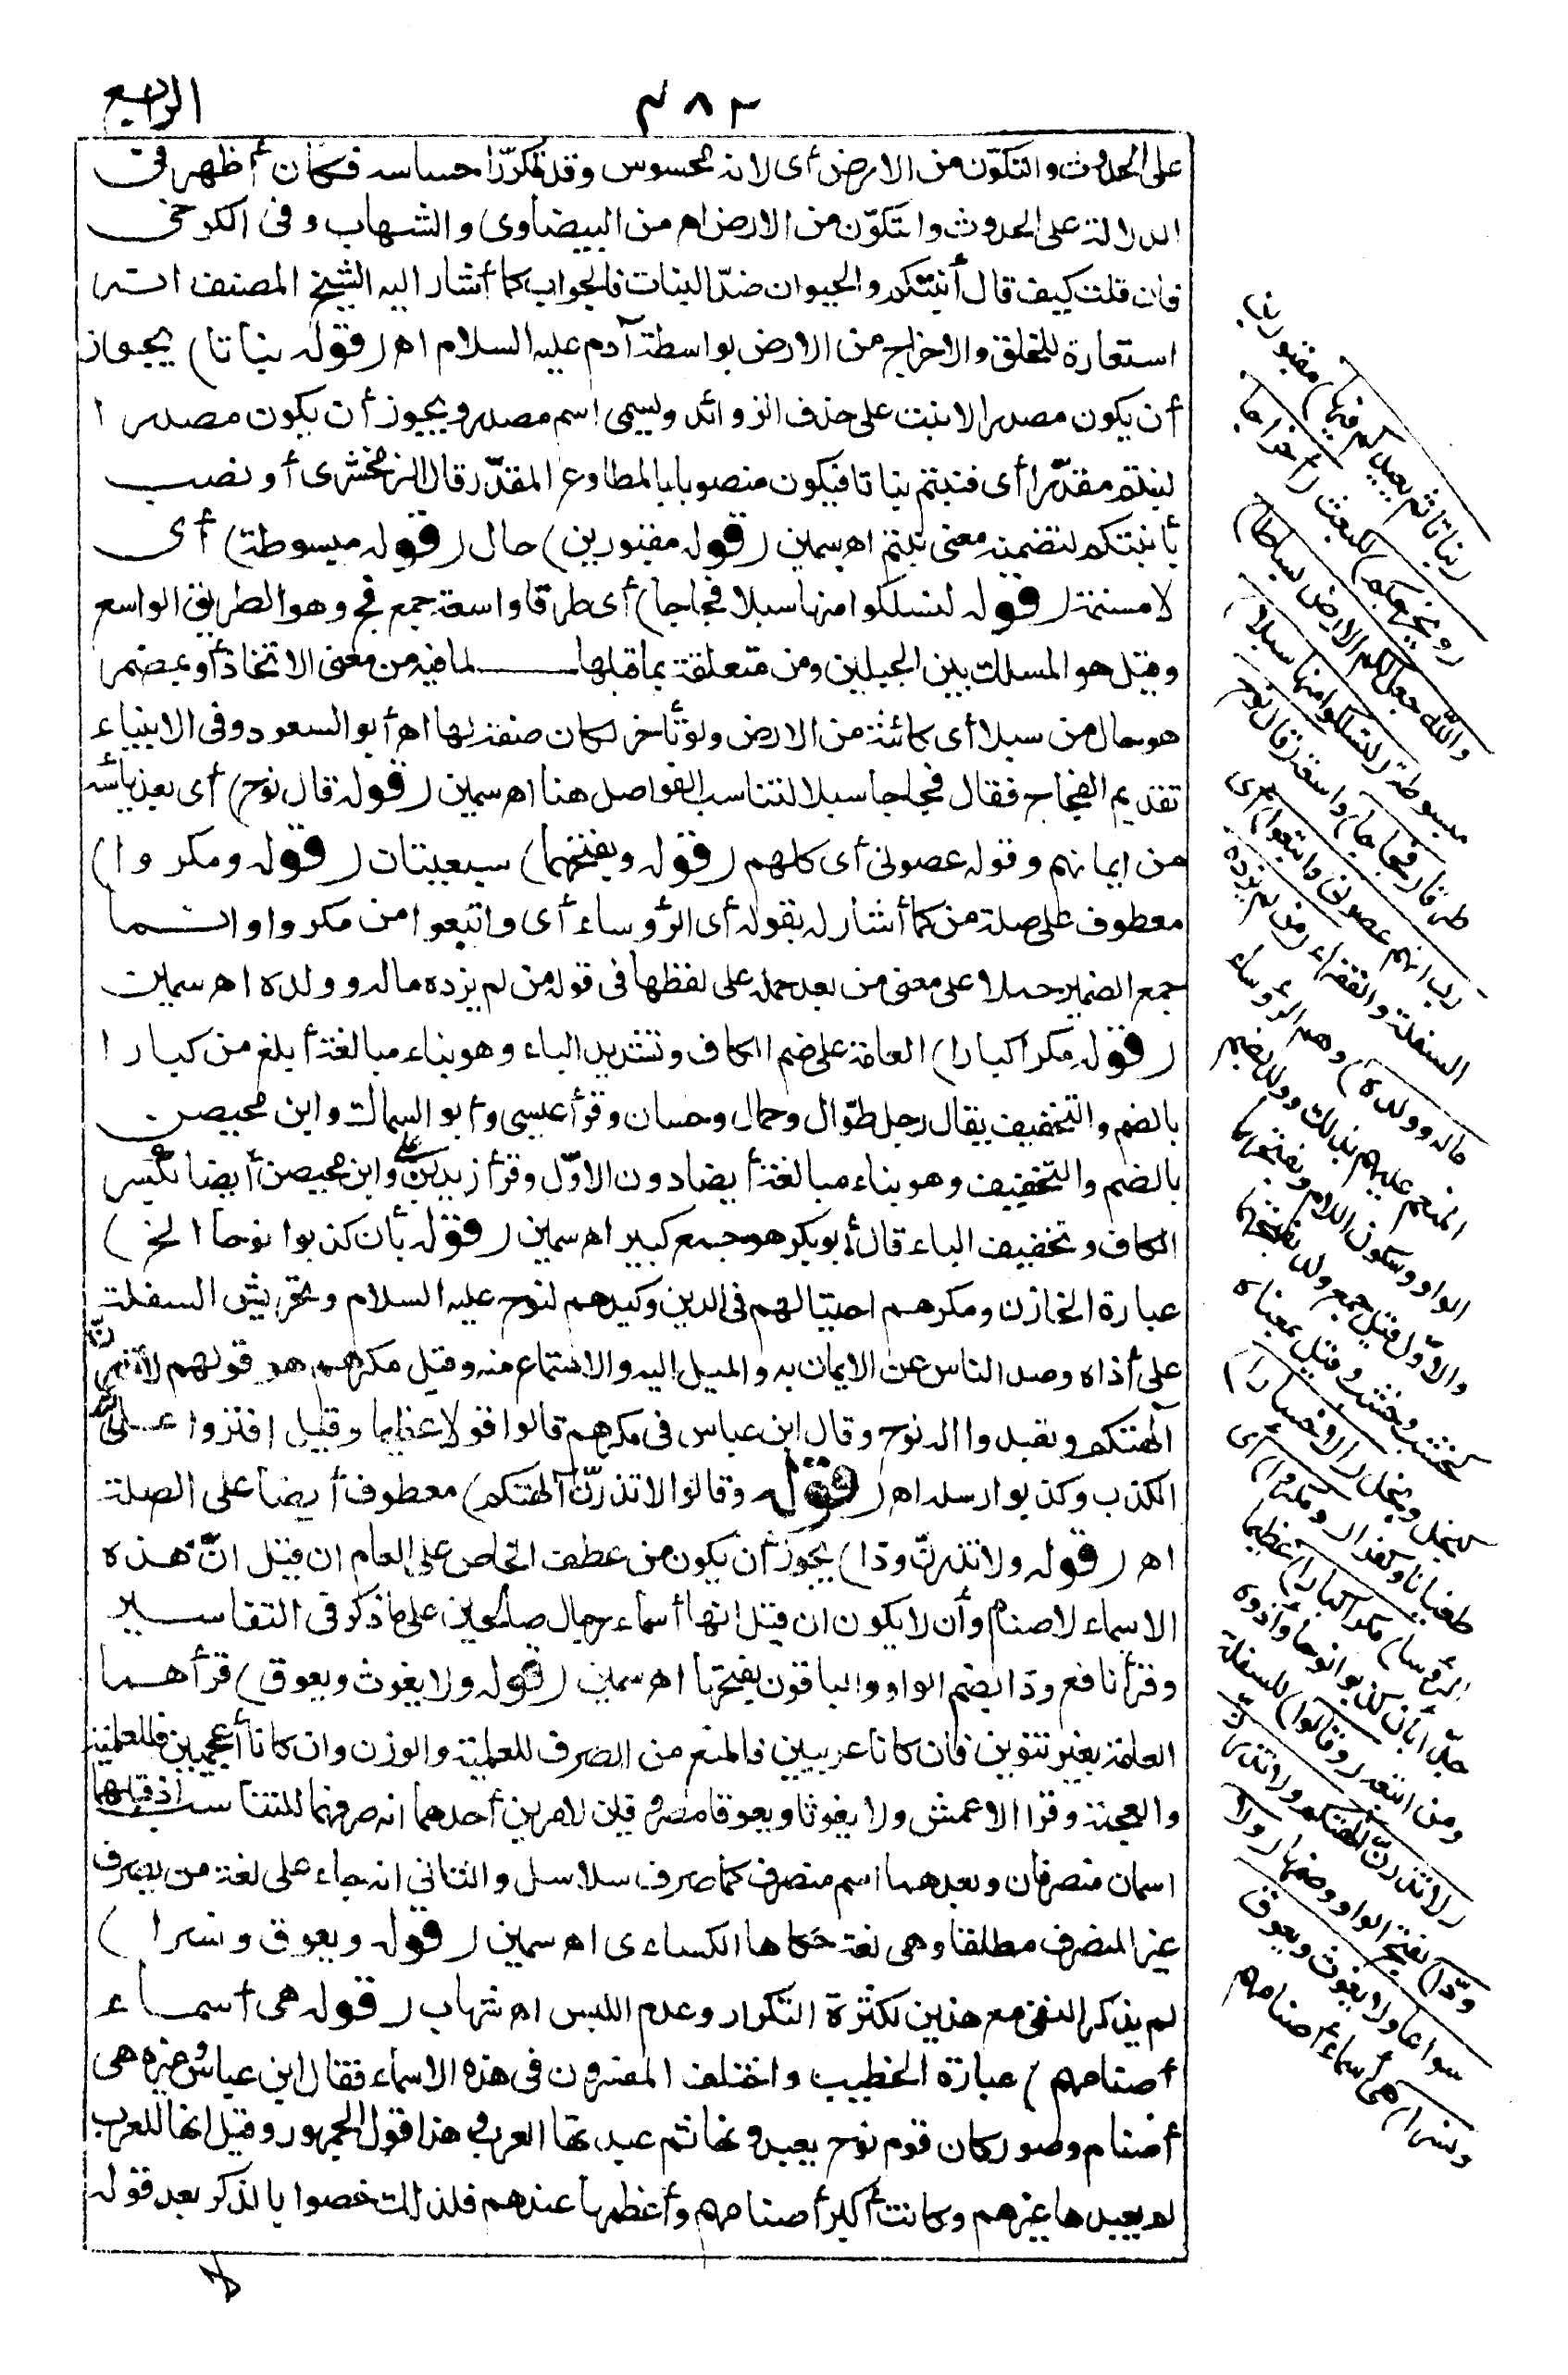 الرابع
٤٨٢
على الحدوث والتكوّن من الارض أى لانه محسوس وقد تكرّر احساسه فكان أظهر فى
الدلالة على الحدوث والتكوّن من الارض اه من البيضاوى والشهاب وفى الكرخى
فان قلت كيف قال أنبتكم والحيوان ضدّ النبات فالجواب كما أشار اليه الشيخ المصنف انه
استعارة للخلق والاخراج من الارض بواسطة آدم عليه السلام اه (قوله نباتا) يجوز
أن يكون مصدرا لانبت على حذف الزوائد ويسمى اسم مصدر ويجوز أن يكون مصدرا
لنبتم مقدّرا أى فنبتم نباتا فيكون منصوبا بالمطاوع المقدّر قال الزمخشرى أو نصب
بأنبتكم لتضمينه معنى نبتم اه سمين (قوله مقبورين) حال (قوله مبسوطة) أى
لا مسنمة (قوله لتسلكوا منها سبلا فجاجا) أى طرقا واسعة جمع فج وهو الطريق الواسع
وقيل هو المسلك بين الجبلين ومن متعلقة بما قبلها لما فيه من معنى الاتخاذ أو بمضمر
هو حال من سبلا أى كائنة من الارض ولو تأخر لكان صفة لها اه أبو السعود وفى الانبياء
تقديم الفجاج فقال فجاجا سبلا لتناسب الفواصل هنا اه سمين (قوله قال نوح) أى بعد يأسه
من ايمانهم وقوله عصونى أى كلهم (قوله وبفتحهما) سبعيتان (قوله ومكروا)
معطوف على صلة من كما أشار له بقوله أى الرؤساء أى واتبعوا من مكروا وانما
جمع الضمير حملا على معنى من بعد حمله على لفظها فى قوله من لم يزده ماله وولده اه سمين
(قوله مكرا كبارا) العامة على ضم الكاف وتشديد الباء وهو بناء مبالغة أبلغ من كبارا
بالضم والتخفيف يقال رجل طوّال وجمال وحسان وقرأ عيسى وأبو السمال وابن محيصن
بالضم والتخفيف وهو بناء مبالغة أيضا دون الاوّل وقرأ زيد بن على وابن محيصن أيضا بكسر
الكاف وتخفيف الباء قال أبو بكر هو جمع كبير اه سمين (قوله بأن كذبوا نوحا الخ)
عبارة الخازن ومكرهم احتيالهم فى الدين وكيدهم لنوح عليه السلام وتحريش السفلة
على أذاه وصد الناس عن الايمان به والميل اليه والاستماع منه وقيل مكرهم هو قولهم لا تذرنّ
آلهتكم وتعبدوا اله نوح وقال ابن عباس فى مكرهم قالوا قولا عظيما وقيل افتروا على الله
الكذب وكذبوا رسله اه (قوله وقالوا لا تذرنّ آلهتكم) معطوف أيضا على الصلة
اه (قوله ولا تذرنّ ودّا) يجوز أن يكون من عطف الخاص على العام ان قيل انّ هذه
الاسماء لاصنام وأن لا يكون ان قيل انها أسماء رجال صالحين على ما ذكر فى التفاسير
وقرأ نافع ودّا بضم الواو والباقون بفتحها اه سمين (قوله ولا يغوث ويعوق) قرأهما
العامة بغير تنوين فان كانا عربيين فالمنع من الصرف للعلمية والوزن وان كانا أعجميين فللعلمية
والعجمة وقرأ الاعمش ولا يغوثا ويعوقا مصروفين لامرين أحدهما انه صرفهما للتناسب اذ قبلهما
اسمان منصرفان وبعدهما اسم منصرف كما صرف سلاسل والثانى انه جاء على لغة من يصرف
غير المنصرف مطلقا وهى لغة حكاها الكساءى اه سمين (قوله ويعوق ونسرا)
لم يذكر النفى مع هذين لكثرة التكرار وعدم اللبس اه شهاب (قوله هى أسماء
أصنامهم) عبارة الخطيب واختلف المفسرون فى هذه الاسماء فقال ابن عباس وغيره هى
أصنام وصور كان قوم نوح يعبدونها ثم عبدتها العرب وهذا قول الجمهور وقيل انها للعرب
لم يعبدها غيرهم وكانت أكبر أصنامهم وأعظمها عندهم فلذلك خصوا بالذكر بعد قوله
(نباتا ثم يعيدكم فيها) مقبورين
(ويخرجكم) للبعث (اخراجا
والله جعل لكم الارض بساطا)
مبسوطة (لتسلكوا منها سبلا)
طرقا (فجاجا) واسعة (قال نوح
رب انهم عصونى واتبعوا) أى
السفلة والفقراء (من لم يزده
ماله وولده) وهم الرؤساء
المنعم عليهم بذلك وولد بضم
الواو وسكون اللام وبفتحهما
والاوّل قيل جمع ولد بفتحهما
كخشب وخشب وقيل بمعناه
كبخل وبخل (الا خسارا)
طغيانا وكفرا (ومكروا) أى
الرؤسا (مكرا كبارا) عظيما
جدّا بأن كذبوا نوحا وآذوه
ومن اتبعه (وقالوا) للسفلة
(لا تذرنّ آلهتكم ولا تذرنّ
ودّا) بفتح الواو وضمها (ولا
سواعا ولا يغوث ويعوق
ونسرا) هى أسماء أصنامهم